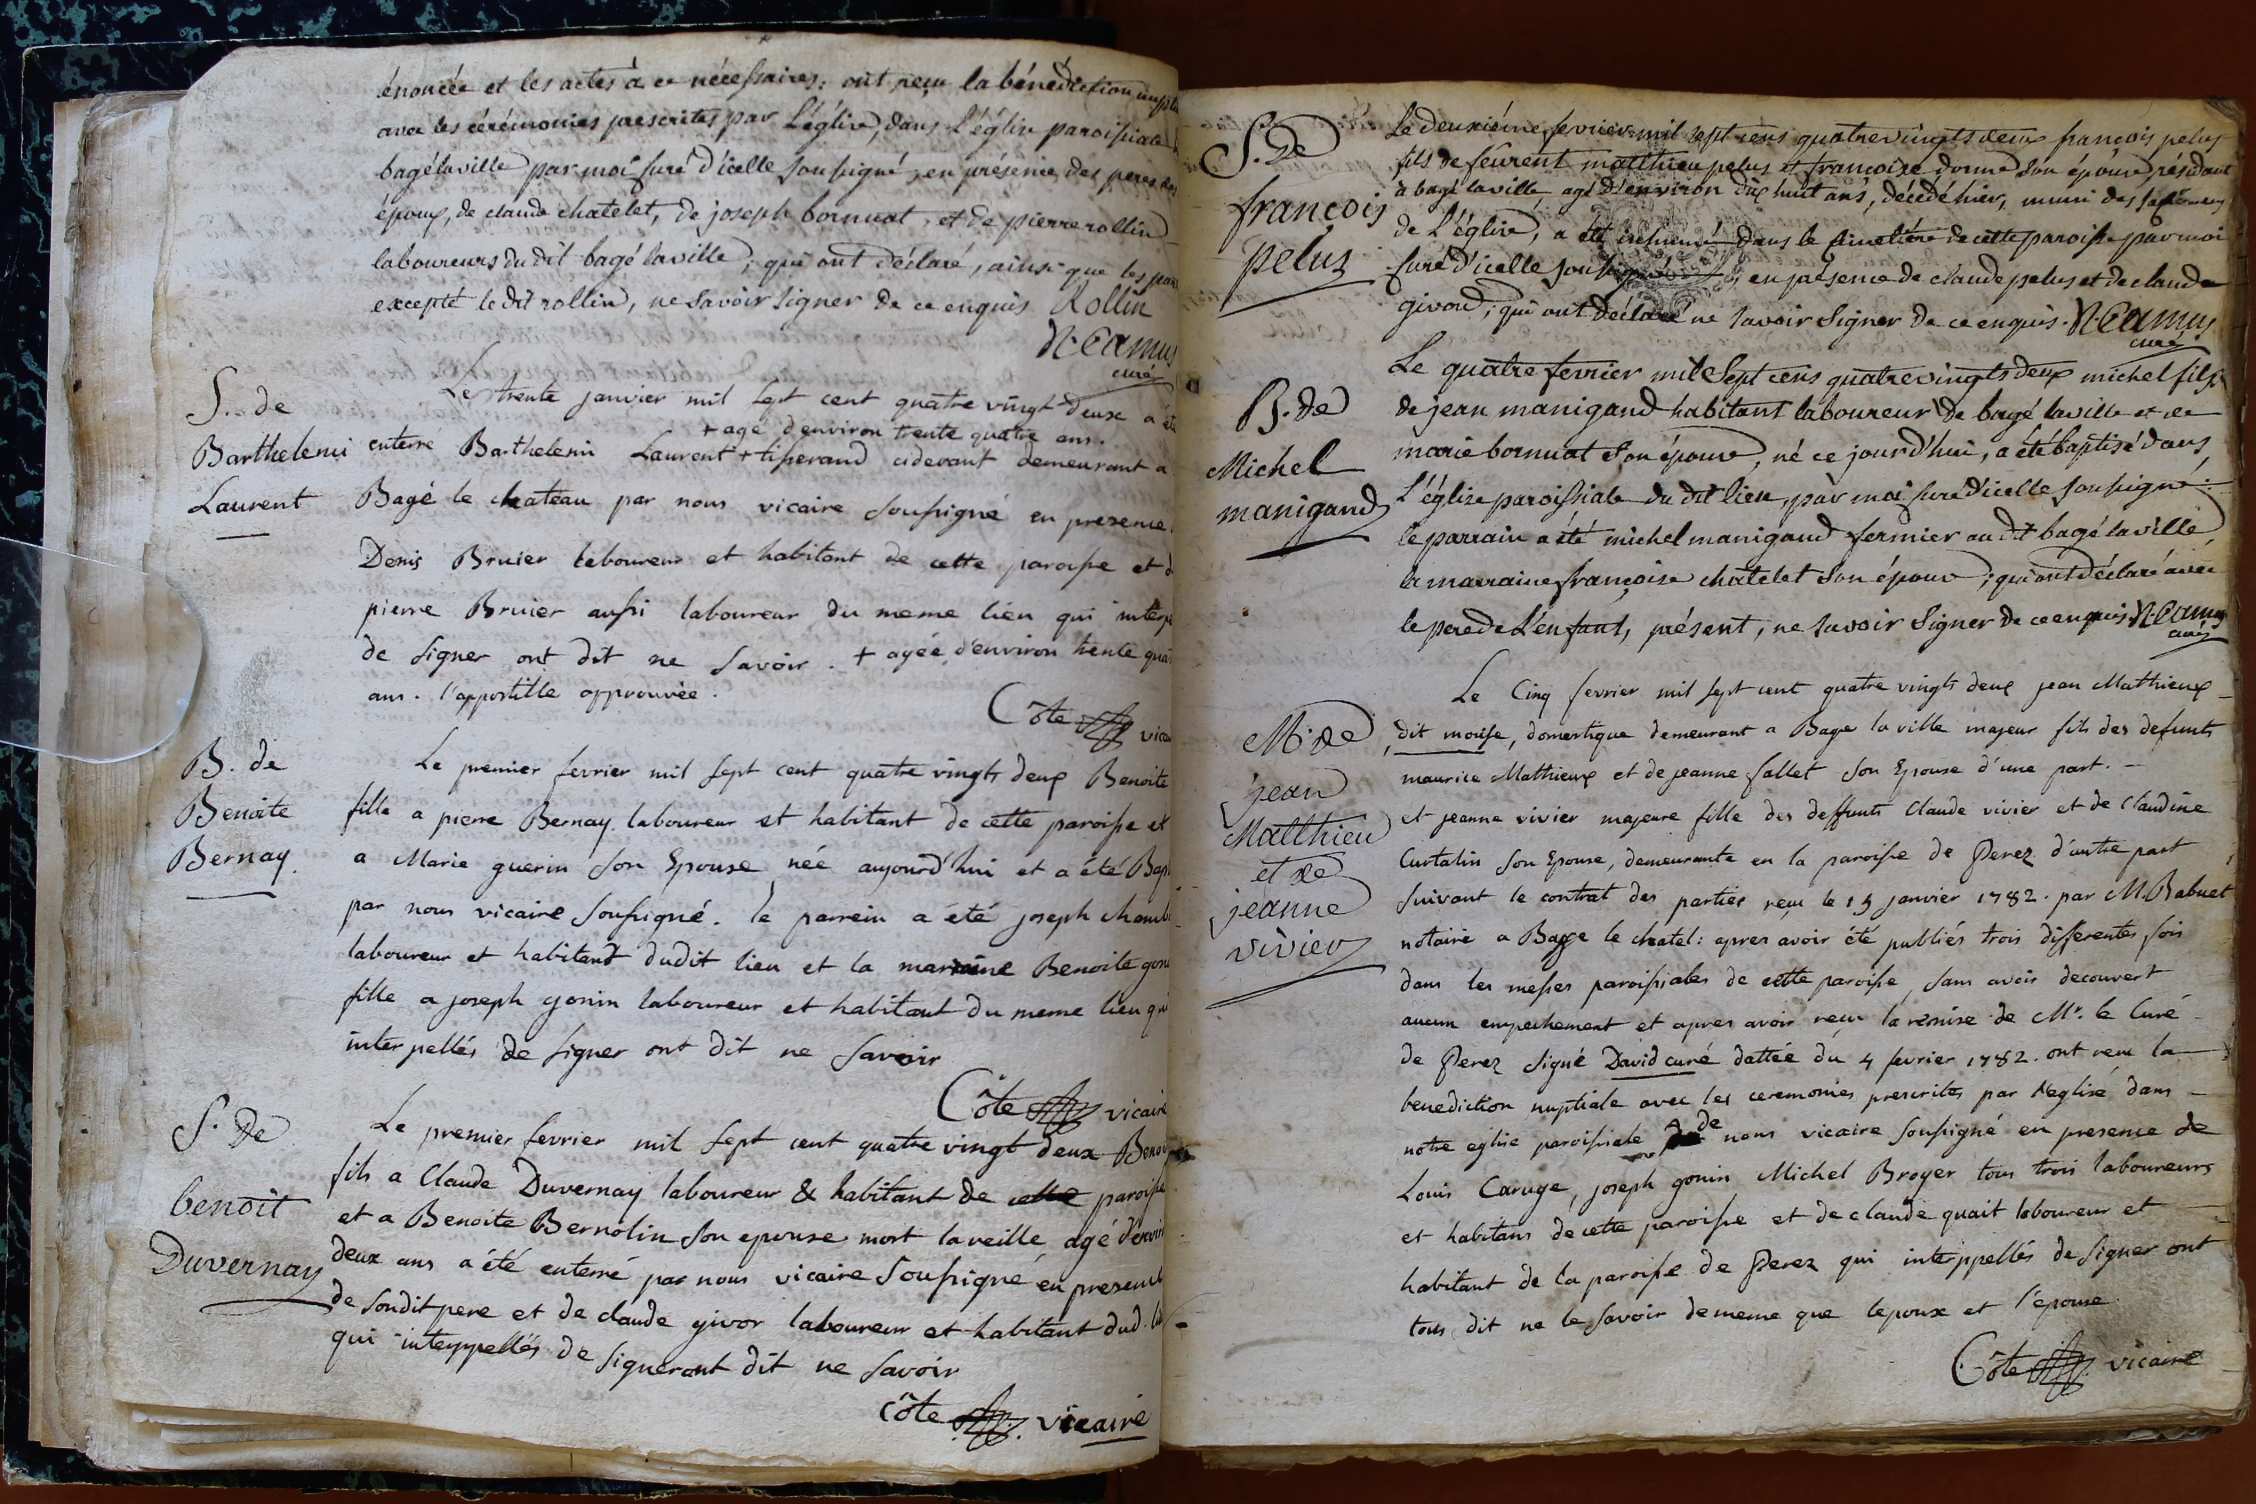 énoncée et les actes à ce nécessaires, ont reçu la bénédiction
avec les cérémonies prescrites par L'église, dans l'église paroissiale
bagé laville par moi Curé d'icelle soussigné, en présence des peres des
époux, de claude chatelet, de joseph bornuat, et de pierre rollin
laboureurs du dit bagé laville, qui ont déclaré, ainsi que les
excepté le dit rollin, ne savoir signer de ce enquis Rollin
N. Camus
curé
S. de
Barthelemi
Laurent
Le trente janvier mil sept cent quatre vingt deux a été
+ agé d'environ trente quatre ans.
enterré Barthelemi Laurent + tisserand cidevant demeurant a
Bagé le chateau par nous vicaire soussigné en presence
Denis Bruier laboureur et habitant de cette paroisse et
pierre Bruier aussi laboureur du meme lieu qui
de signer ont dit ne savoir. + agée d'environ trente
ans. l'appostille approuvée.
Côte
B. de
Benoite
Bernay.
Le premier fevrier mil sept cent quatre vingts deux Benoite
fille a pierre Bernay laboureur et habitant de cette paroisse et
a Marie guerin son Epouse née aujourd'hui et a été
par nous vicaire soussigné. le parrein a été joseph
laboureur et habitant dudit lieu et la marraine Benoite
fille a joseph gonin laboureur et habitant du meme lieu qui
interpellés de signer ont dit ne savoir
Côte vicaire
S. de
benoit
Duvernay
Le premier fevrier mil sept cent quatre vingt deux
fils a Claude Duvernay laboureur & habitant de cette paroisse
et a Benoite Bernolin son epouse mort la veille agé
deux ans a été enterré par nous vicaire soussigné en presence
de sondit pere et de claude givor laboureur et habitant dud.
qui interppellés de signer ont dit ne savoir
côte vicaire
S. de
françois
pelus
Le deuxiéme fevrier mil sept cens quatre vingts deux françois pelus
fils de feurent matthieu pelus et francoise donne son épouse, résidant
a bagé laville, agé d'environ dix huit ans, décédé hier, muni des sacremens
de L'église, a été inhumé dans le cimetière de cette paroisse par moi
Curé d'icelle soussigné, en présence de claude pelus et de claude
givord; qui ont déclaré ne savoir signer de ce enquis. N. Camus
curé
B. de
Michel
manigand
Le quatre fevrier mil sept cens quatre vingts deux michel fils
de jean manigand habitant laboureur de bagé laville et de
marie bornuat son épouse, né ce jourd'hui, a été baptisé dans
L'église paroissiale du dit lieu, par moi curé d'icelle soussigné.
le parrain a été michel manigand fermier au dit bagé laville,
la marraine françoise chatelet son épouse; qui ont déclaré avec
le pere de L'enfant, présent, ne savoir signer de ce enquis. N. Camus
curé
M. de
jean
Matthieu
et de
jeanne
vivier
Le Cinq fevrier mil sept cent quatre vingts deux jean Mathieux
dit moïse, domestique demeurant a Bage la ville majeur fils des defunts
maurice Mathieux et de jeanne fallet son Epouse d'une part.
et jeanne vivier majeure fille des deffunts Claude vivier et de Claudine
Curtalin son Epouse, demeurante en la paroisse de Perez d'autre part
suivant le contrat des parties reçu le 13 janvier 1782. par M. Rabuet
notaire a Bage le châtel: apres avoir été publiés trois differentes fois
dans les messes paroissiales de cette paroisse, sans avoir decouvert
aucun empechement et apres avoir reçu la remise de Mr. le Curé
de Perez signé David curé dattée du 4 fevrier 1782. ont reçu la
benediction nuptiale avec les ceremonies prescrites par l'eglise dans
notre eglise paroissiale de nous vicaire soussigné en presence de
Louis Caruge, joseph gonin Michel Broyer tous trois laboureurs
et habitans de cette paroisse et de claude quait laboureur et
habitant de la paroisse de Perez qui interppellés de signer ont
tous dit ne le savoir de meme que l'epoux et l'epouse.
Côte vicaire